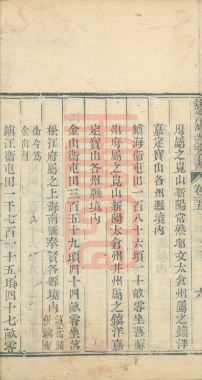 府屬之崑山新陽常熟昭文太倉州屬之鎮洋
嘉定寶山各州縣境內
鎮海衛屯田一百八十六項一十畝零坐落蘇
州府屬之崑山新陽太倉州并州屬之鎮洋嘉
定寶山各州縣境內
金山衛屯田三百五十九項四十四畝零坐落
松江府屬之上海南匯奉賢各縣境內
金山衛
鎮江衛屯田一千七百一十五項四十七畝零
卷五
六